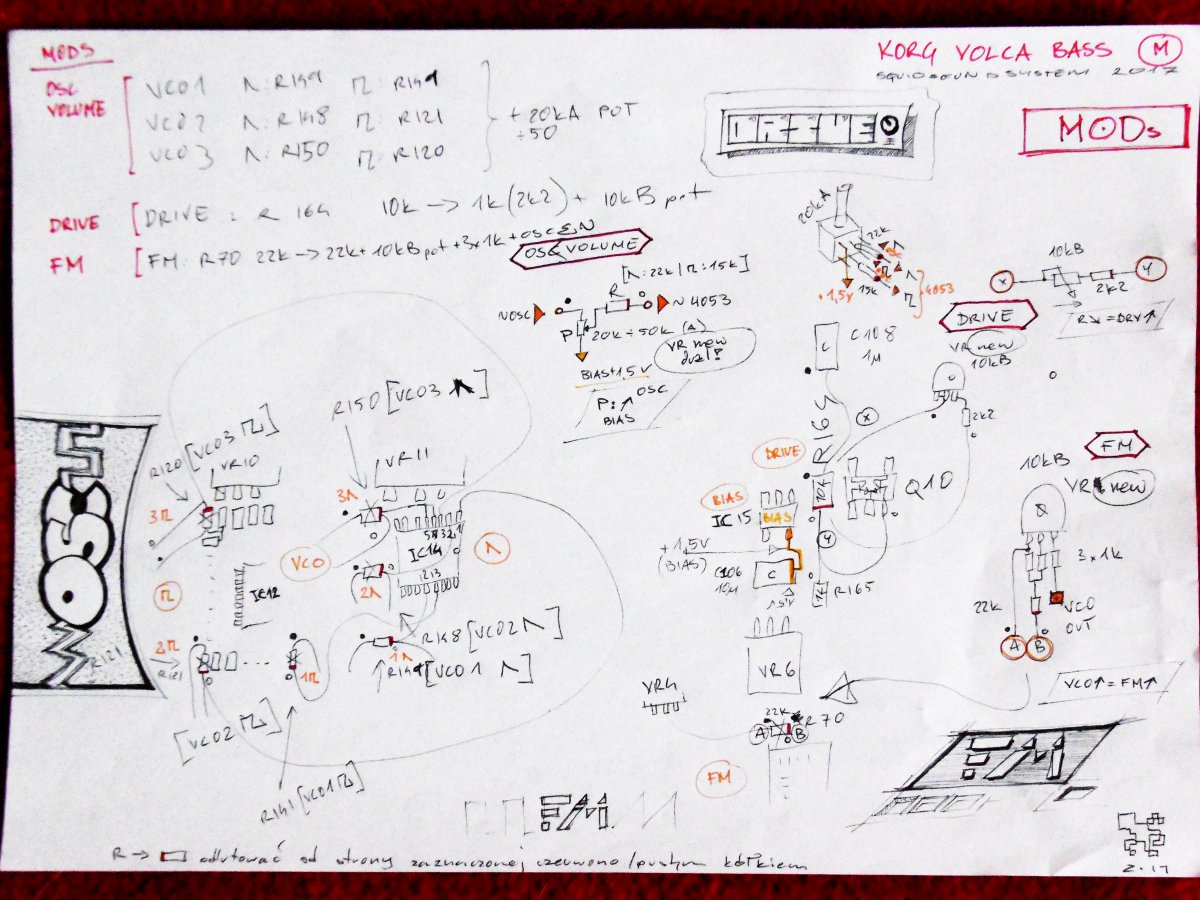 MODS
KORG VOLCA BASS M
SQUIDSOUNDSYSTEM 2017
MODs
OSC VOLUME
VCO1 Λ: R149 Π: R141
VCO2 Λ: R148 Π: R121
VCO3 Λ: R150 Π: R120
+ 20kA POT
÷50
DRIVE [DRIVE : R 164 10k → 1k (2k2) + 10kB pot
FM [FM: R70 22k → 22k + 10kB pot + 3x1k + OSC
OSC VOLUME
[Λ: 22k / Π: 15k]
R
N 4053
P
20k ÷ 50k (A)
VR new
dual!
BIAS +1,5V
P: ↑ OSC
BIAS
20kA
22k
15k
+1,5V
4053
10kB
X
2k2
Y
R↘ = DRV↑
DRIVE
VR new
10kB
2k2
C108
1µ
R164
X
DRIVE
10k
Q10
BIAS
IC15
BIAS
Y
+1,5V
(BIAS)
C106
10µ
C
R165
VR6
VR4
22k
R70
A B
FM
FM
10kB
VR new
3x1k
22k
VCO
OUT
A B
VCO↑ = FM↑
OSC
R150 [VCO3 Λ]
R120 [VCO3 Π]
VR10
VR11
3Π
3Λ
VCO
IC14
Λ
Π
IC12
2Λ
R148 [VCO2 Λ]
2Π
R121
R121
1Π
1Λ
R149 [VCO1 Λ]
[VCO2 Π]
R141 [VCO1 Π]
FM
FM
R → odlutować od strony zaznaczonej czerwono/pustym kółkiem
2.17